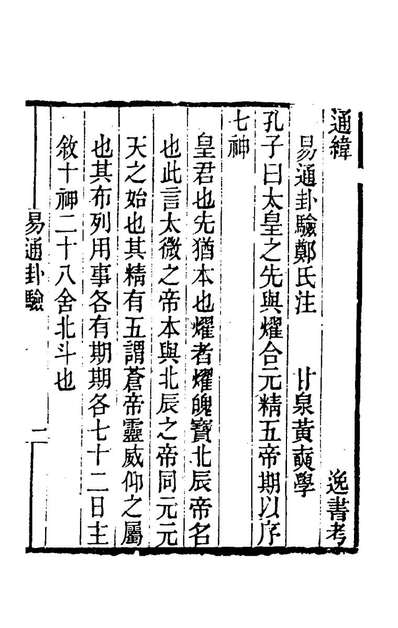 通緯 逸書考
易通卦驗鄭氏注 甘泉黃奭學
孔子曰太皇之先與燿合元精五帝期以序
七神
皇君也先猶本也燿者燿魄寶北辰帝名
也此言太微之帝本與北辰之帝同元元
天之始也其精有五謂蒼帝靈威仰之屬
也其布列用事各有期期各七十二日主
敘十神二十八舍北斗也
易通卦驗 二